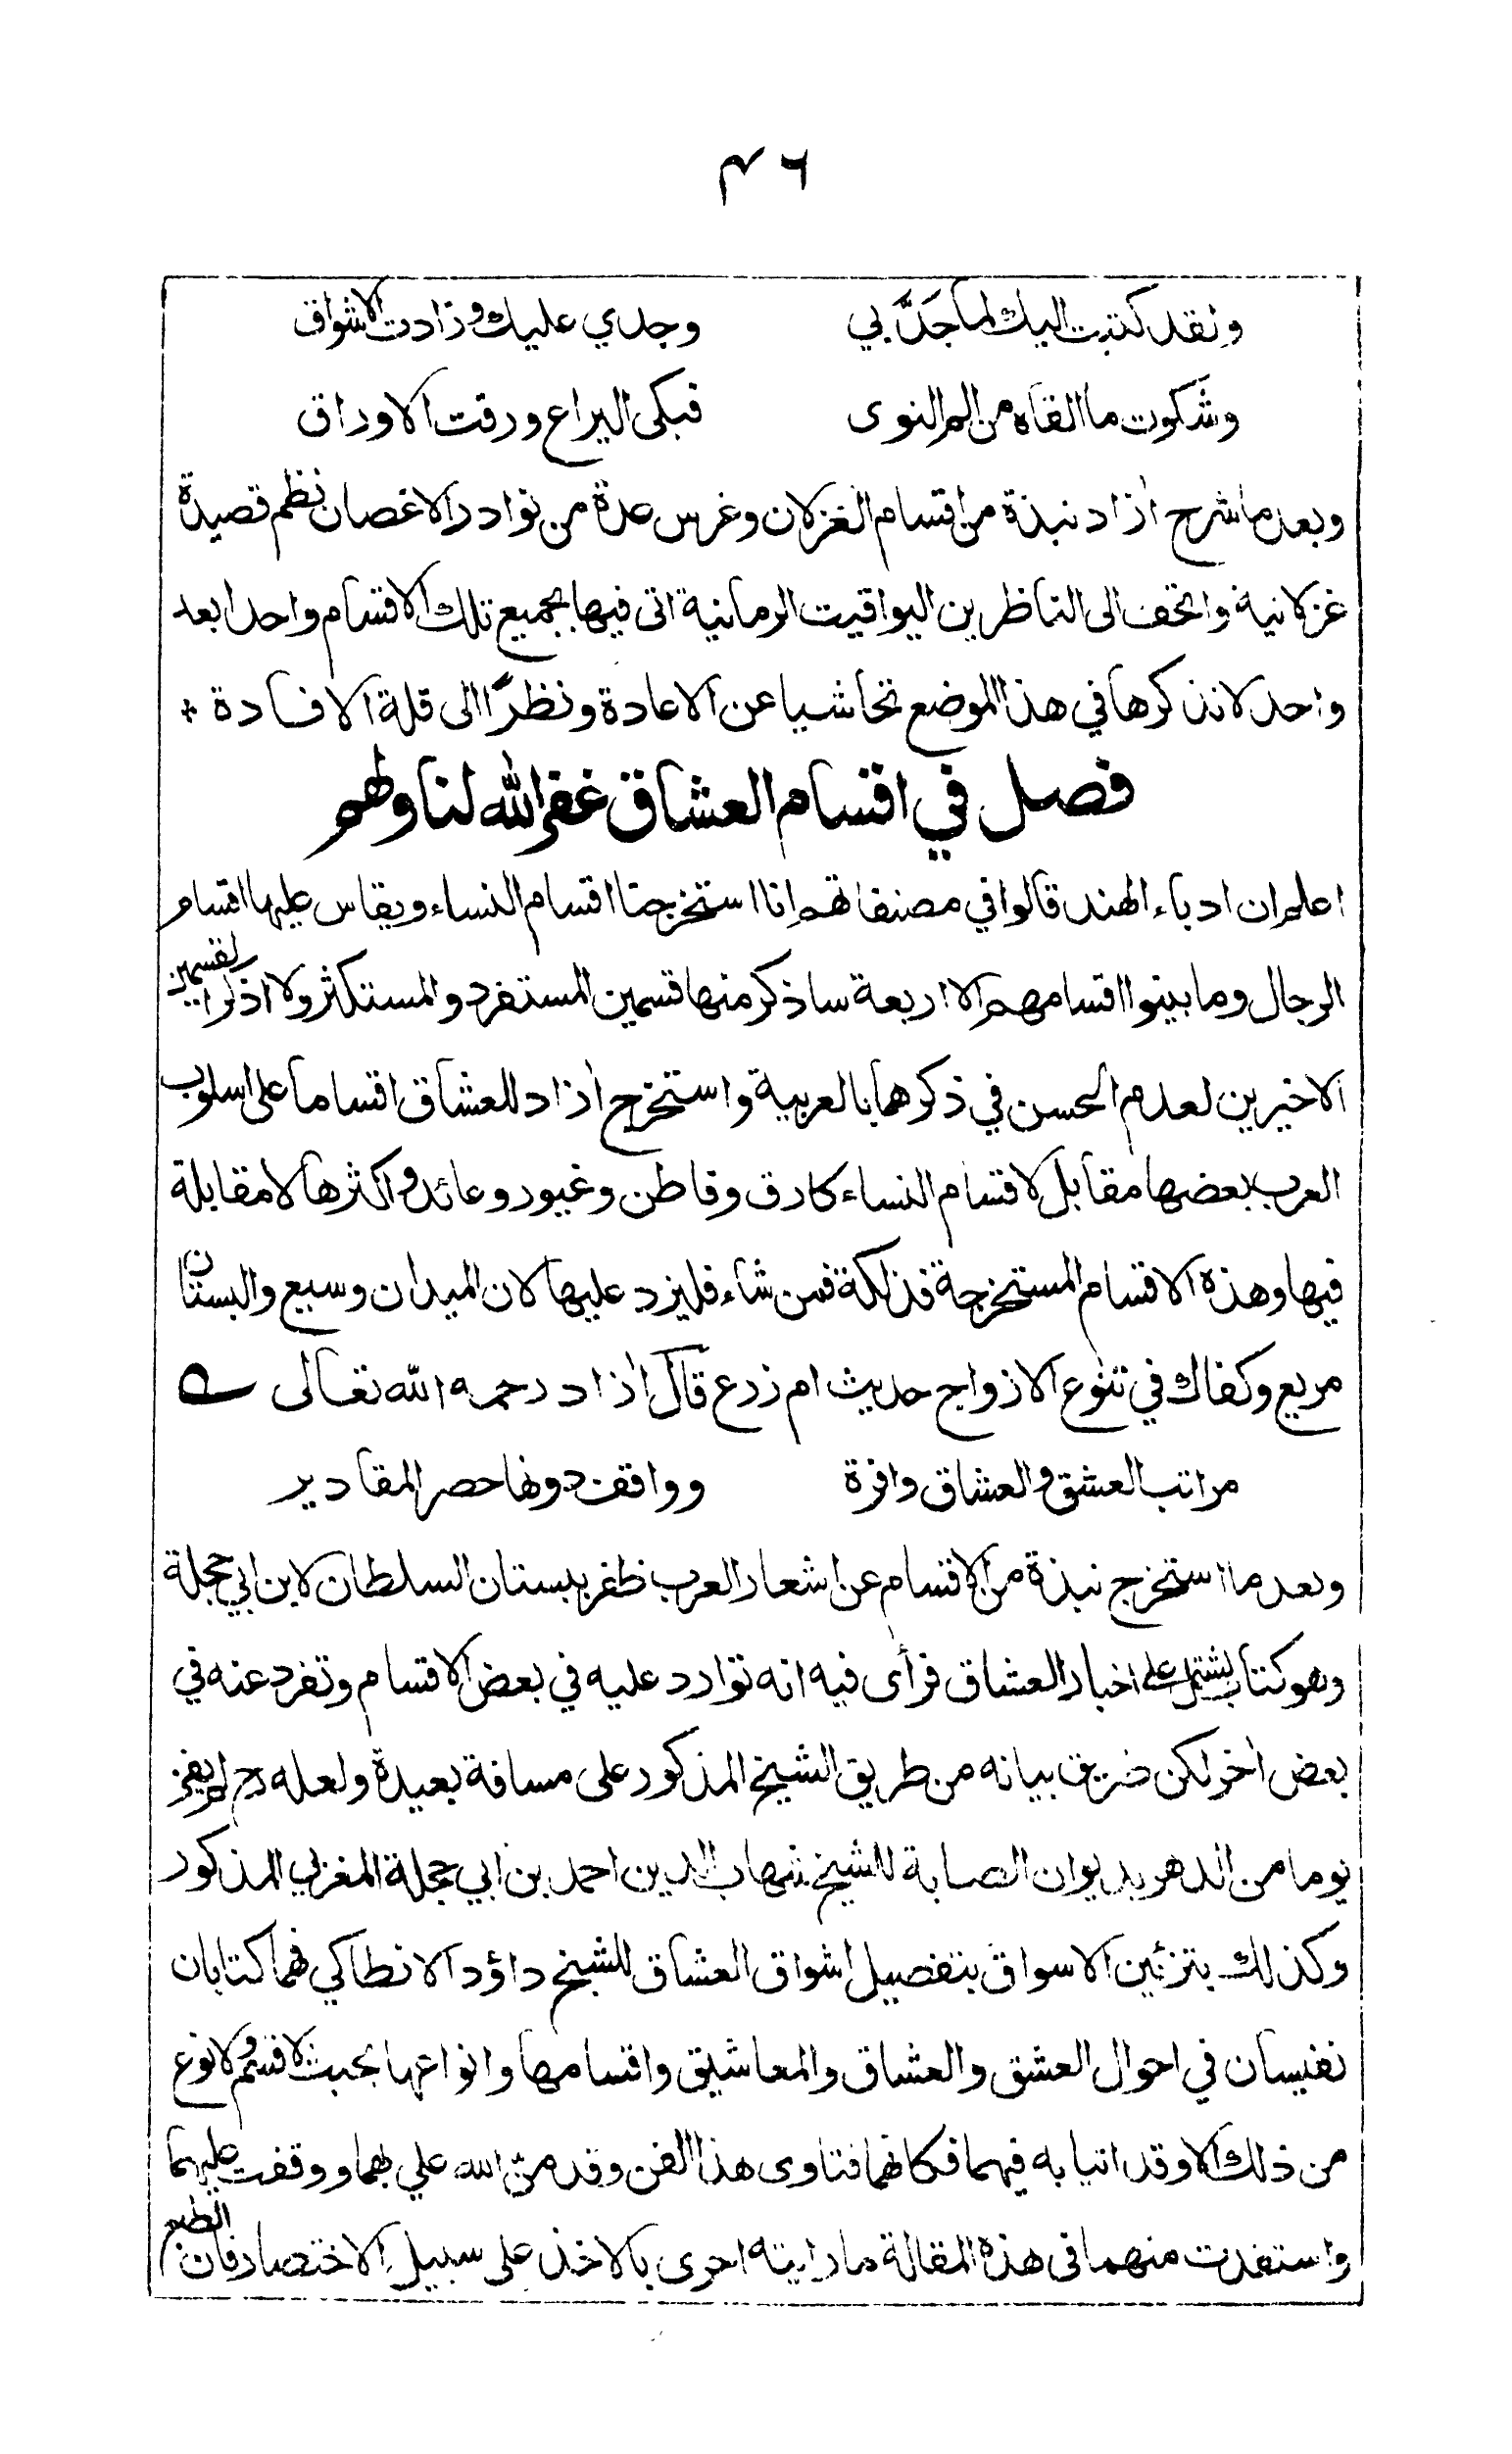 ٤٦
ولقد كتبت اليك لما جَدَّ بي وجدي عليك وزادت الاشواق
وشكوت ما القاه من الم النوى فبكى اليراع ورقت الاوراق
وبعد ما شرح اٰزاد نبذة من اقسام الغزلان وغرس عدة من نوادر الاغصان نظم قصيدة
غزلانية واتحف الى الناظرين اليواقيت الرمانية اتى فيها بجميع تلك الاقسام واحدا بعد
واحد لانذكرها في هذا الموضع تحاشيا عن الاعادة ونظرًا الى قلة الافادة *
فصل في اقسام العشاق غفر الله لنا ولهم
اعلم ان ادباء الهند قالوا في مصنفاتهم انا استخرجنا اقسام النساء ويقاس عليها اقسام
الرجال وما بينوا اقسامهم الا اربعة ساذكر منها قسمين المستفرد والمستكثر ولا اذكر القسمين
الاخيرين لعدم الحسن في ذكرهما بالعربية واستخرج اٰزاد للعشاق اقساما على اسلوب
العرب بعضها مقابل لاقسام النساء كارق وقاطن وغيور وعائد واكثرها لامقابلة
فيها وهذه الاقسام المستخرجة فذلكة فمن شاء فليزد عليها لان الميدان وسيع والبستان
مريع وكفاك في تنوع الازواج حديث ام زرع قال اٰزاد رحمه الله تعالى
مراتب العشق والعشاق وافرة وواقف دونها حصر المقادير
وبعد ما استخرج نبذة من الاقسام عن اشعار العرب ظفر ببستان السلطان لابن ابي حجلة
وهو كتاب يشتمل على اخبار العشاق فرأى فيه انه توارد عليه في بعض الاقسام وتفرد عنه في
بعض اٰخر لكن طريق بيانه من طريق الشيخ المذكور على مسافة بعيدة ولعله رح لم يفز
يوما من الدهر بديوان الصبابة للشيخ شهاب الدين احمد بن ابي حجلة المغربي المذكور
وكذلك بتزئين الاسواق بتفصيل اشواق العشاق للشيخ داؤد الانطاكي فهما كتابان
نفيسان في احوال العشق والعشاق والمعاشيق واقسامها وانواعها بحيث لاقسم ولانوع
من ذلك الا وقد اتيا به فيهما فكانهما فتاوى هذا الفن وقد منّ الله علي بهما ووقفت عليهما
واستفدت منهما في هذه المقالة ما رايته احرى بالاخذ على سبيل الاختصار فان الطبع